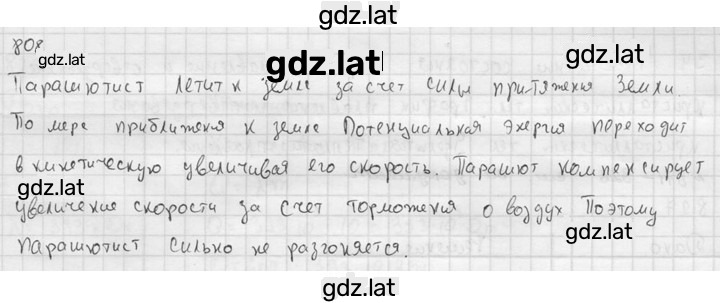 gdz.lat
808
gdz.lat
gdz.lat
gdz.lat
Парашютист летит к земле за счет силы притяжения Земли.
По мере приближения к земле Потенциальная Энергия переходит
в кинетическую увеличивая его скорость. Парашют компенсирует
gdz.lat
увеличение скорости за счет торможения о воздух. Поэтому
gdz.lat
парашютист сильно не разгоняется.
gdz.lat